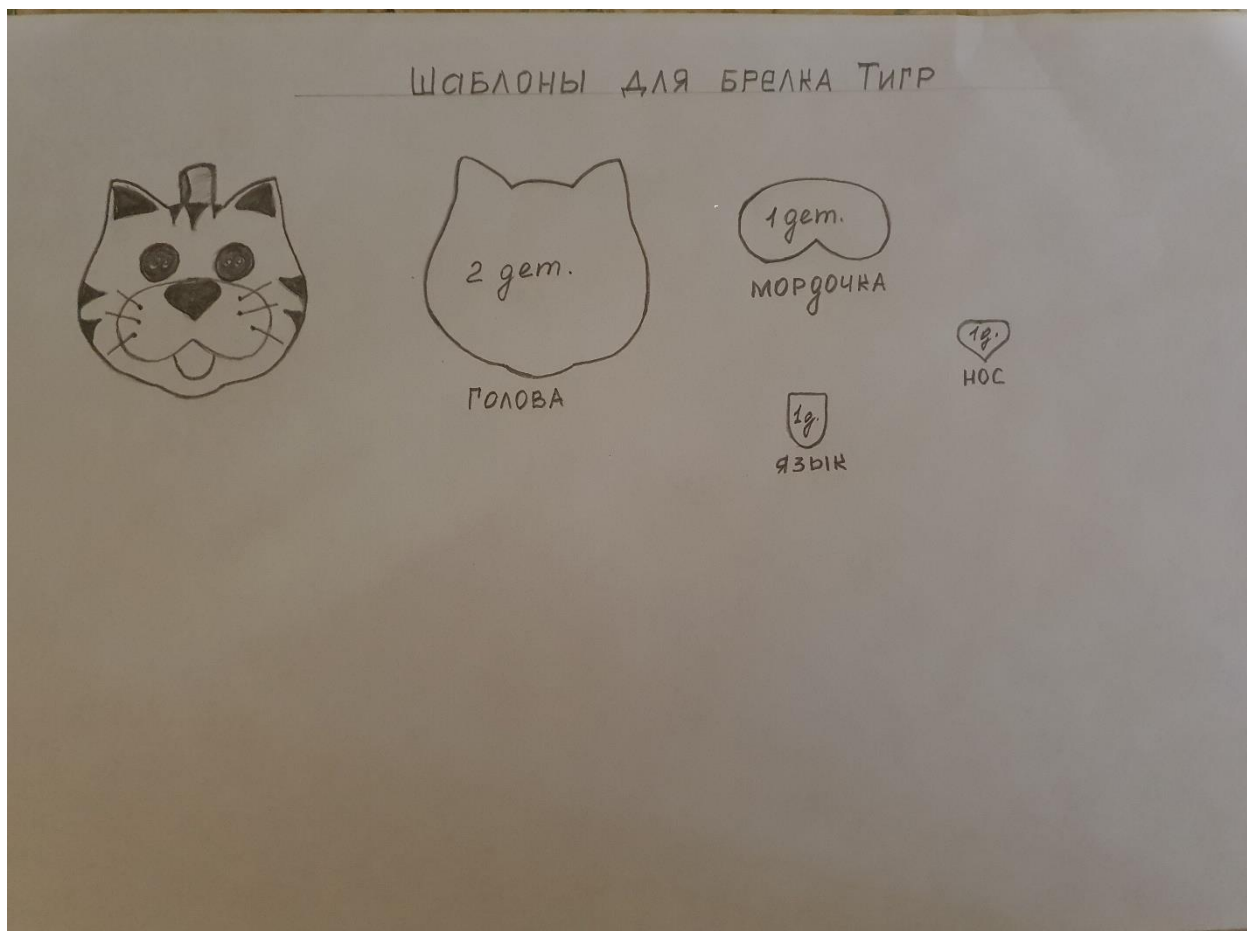 Шаблоны для брелка Тигр
2 дет.
ГОЛОВА
1 дет.
МОРДОЧКА
1д.
НОС
1д.
ЯЗЫК